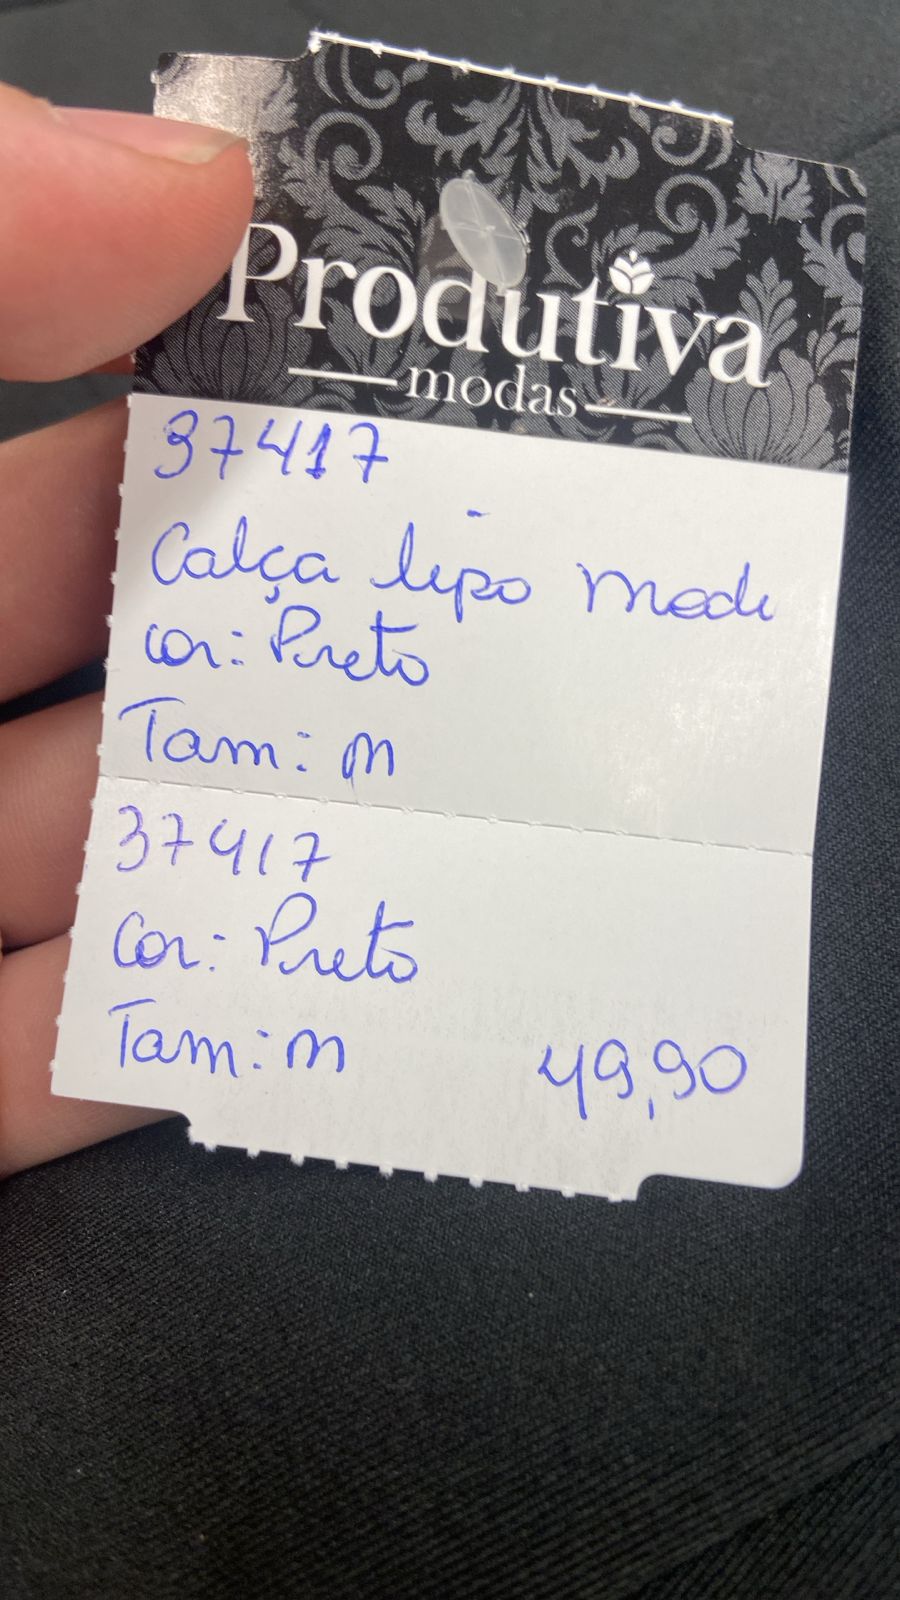 Produtiva
modas
37417
Calça lipo Mode
cor: Preto
Tam: M
37417
Cor: Preto
Tam: M 49,90